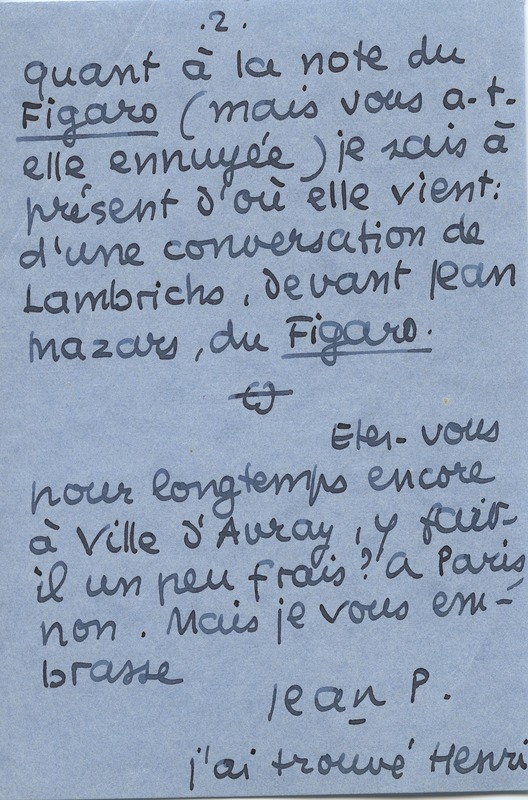 .2.
quant à la note du
Figaro (mais vous a-t-
elle ennuyée) je sais à
présent d'où elle vient:
d'une conversation de
Lambrichs, devant Jean
Mazars, du Figaro.
Etes-vous
pour longtemps encore
à Ville d'Avray, y fait-
il un peu frais? à Paris
non. Mais je vous em-
brasse
Jean P.
j'ai trouvé Henri